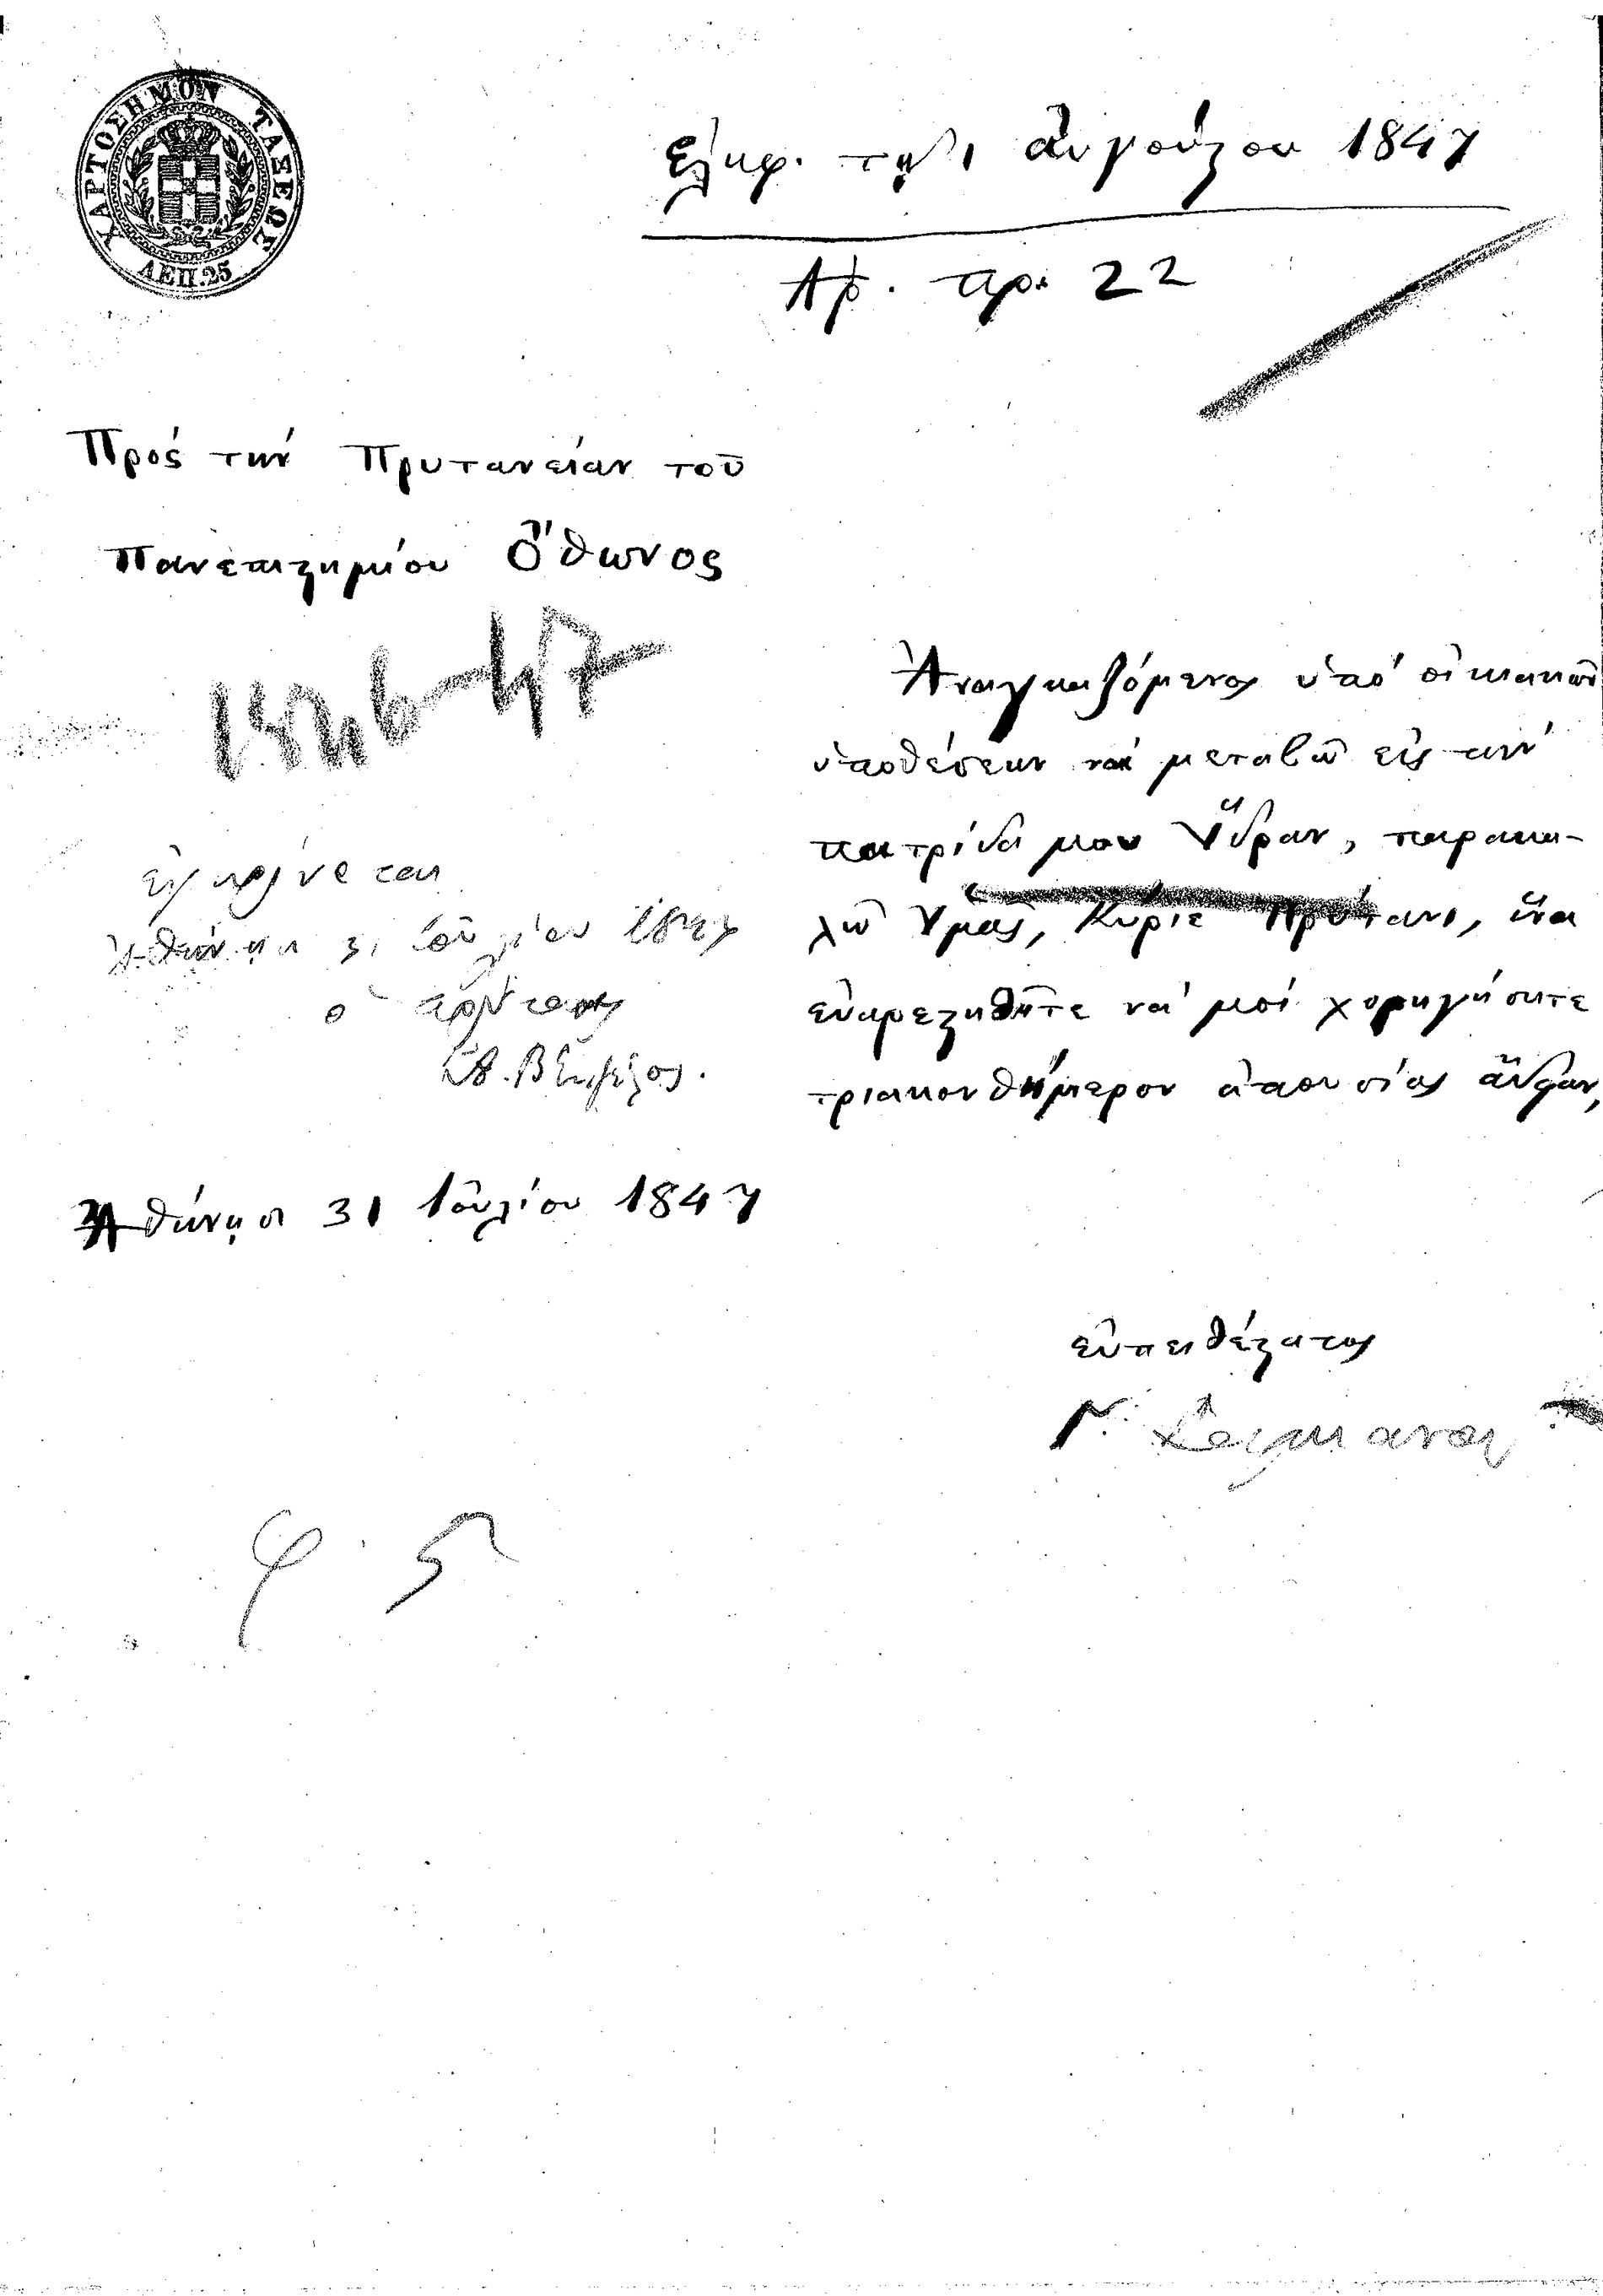 ΧΑΡΤΟΣΗΜΟΝ ΤΑΞΕΩΣ
ΛΕΠ. 25
Ελήφ. τῇ 1 Αὐγούστου 1847
Ἀρ. πρ. 22
Πρός τήν Πρυτανείαν τοῦ
Πανεπιστημίου Ὄθωνος
1846-47
Ἀναγκαζόμενος ὑπό οἰκιακῶν
ὑποθέσεων νά μεταβῶ εἰς τήν
πατρίδα μου Ὕδραν, παρακα-
λῶ Ὑμᾶς, Κύριε Πρύτανι, ἵνα
εὐαρεστηθῆτε νά μοί χορηγήσητε
τριακονθήμερον ἀπουσίας ἄδειαν,
ἐγκρίνεται
Ἀθήνησι 31 Ἰουλίου 1847
ὁ πρύτανης
Ἀθήνησι 31 Ἰουλίου 1847
εὐπειθέστατος
φ. 5